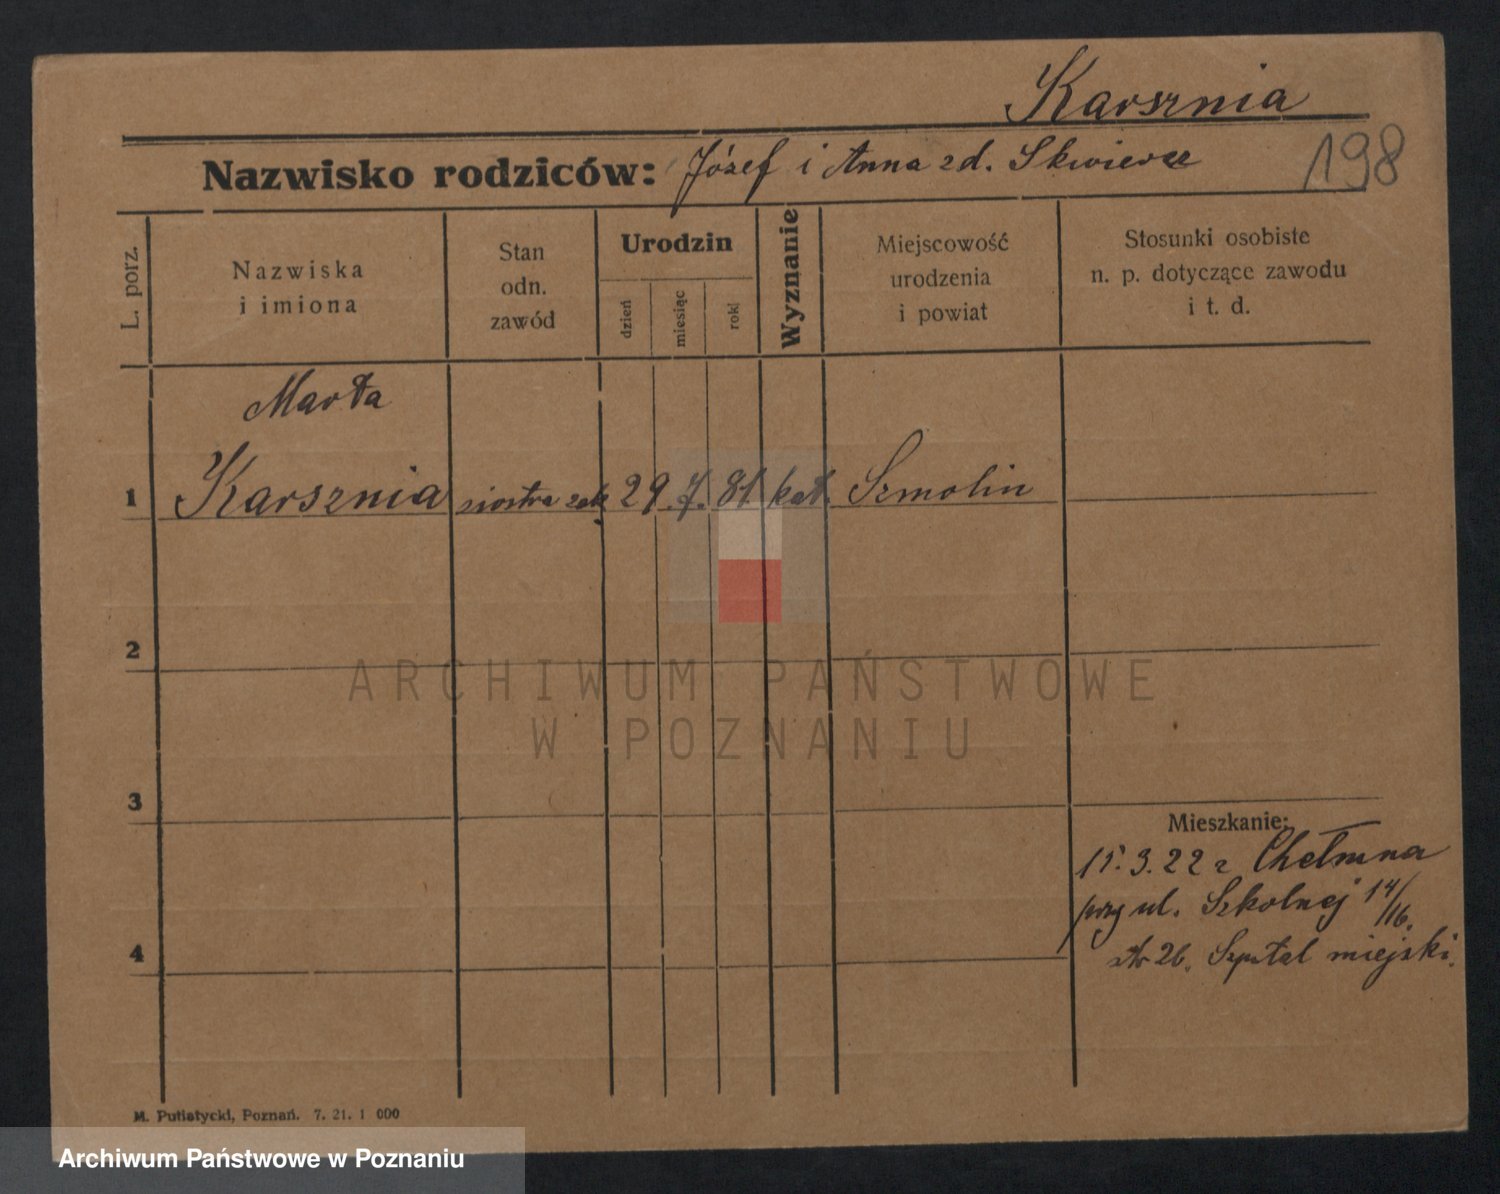 Karsznia
Nazwisko rodziców: Józef i Anna zd. Skwiercz
198
L. porz.
Nazwiska
i imiona
Stan
odn.
zawód
Urodzin
dzień
miesiąc
rok
Wyznanie
Miejscowość
urodzenia
i powiat
Stosunki osobiste
n. p. dotyczące zawodu
i t. d.
Marta
1 Karsznia siostra zak. 29. 7. 81. kat. Szmolin
2
ARCHIWUM PAŃSTWOWE
W POZNANIU
3
Mieszkanie:
15.3.22 z Chełmna
przy ul. Szkolnej 14/16.
4
26. Szpital miejski.
M. Putiatycki, Poznań. 7. 21. 1 000
Archiwum Państwowe w Poznaniu